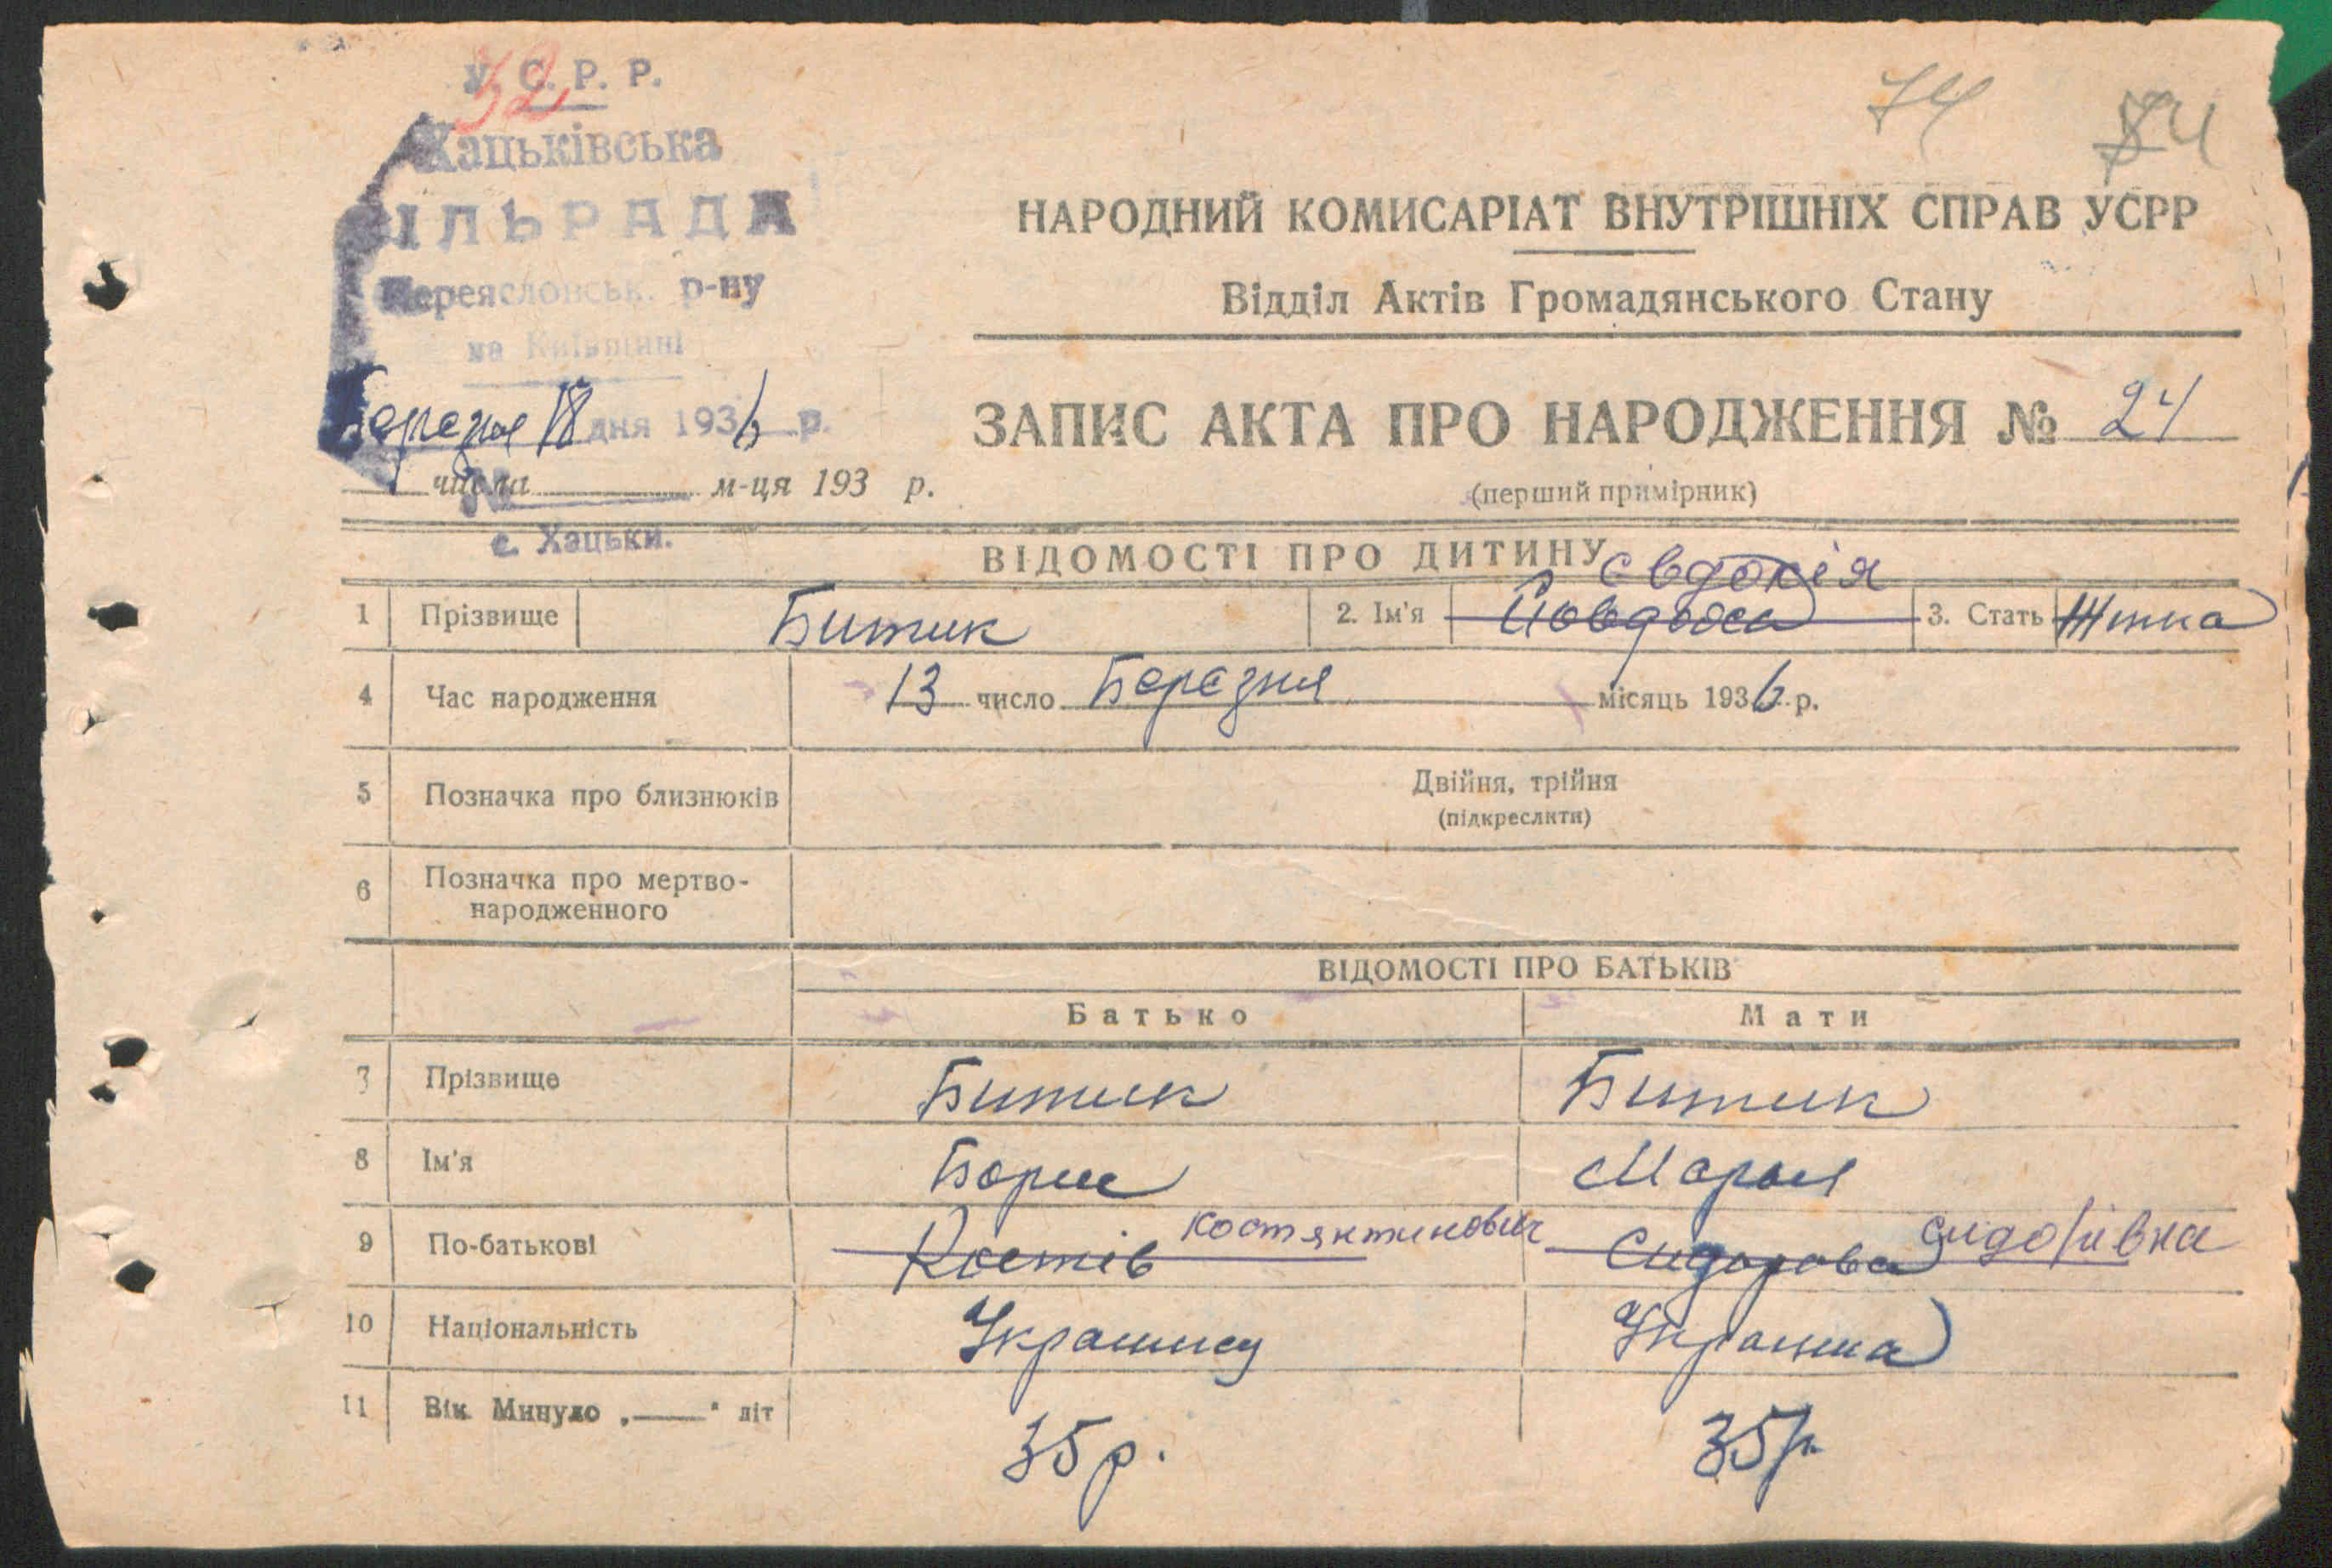 У. С. Р. Р.
32
74
Хацьківська
СІЛЬРАДА
Переясловськ. р-ну
на Київщині
Березня 18 дня 1936 р.
числа м-ця 193 р.
№
с. Хацьки.
НАРОДНИЙ КОМИСАРІАТ ВНУТРІШНІХ СПРАВ УСРР
Відділ Актів Громадянського Стану
ЗАПИС АКТА ПРО НАРОДЖЕННЯ № 24
(перший примірник)
ВІДОМОСТІ ПРО ДИТИНУ
Євдокія
1 Прізвище Битик 2. Ім'я 3. Стать Жінка
4 Час народження 13 число Березня місяць 1936 р.
5 Позначка про близнюків Двійня, трійня
(підкреслити)
6 Позначка про мертво-
народженного
ВІДОМОСТІ ПРО БАТЬКІВ
Батько Мати
7 Прізвище Битик Битик
8 Ім'я Борис Марья
9 По-батькові Костів Костянтинович Сидорова Сидорівна
10 Національність Украинец Украинка
11 Вік Минуло „——“ літ 35 р. 35 р.